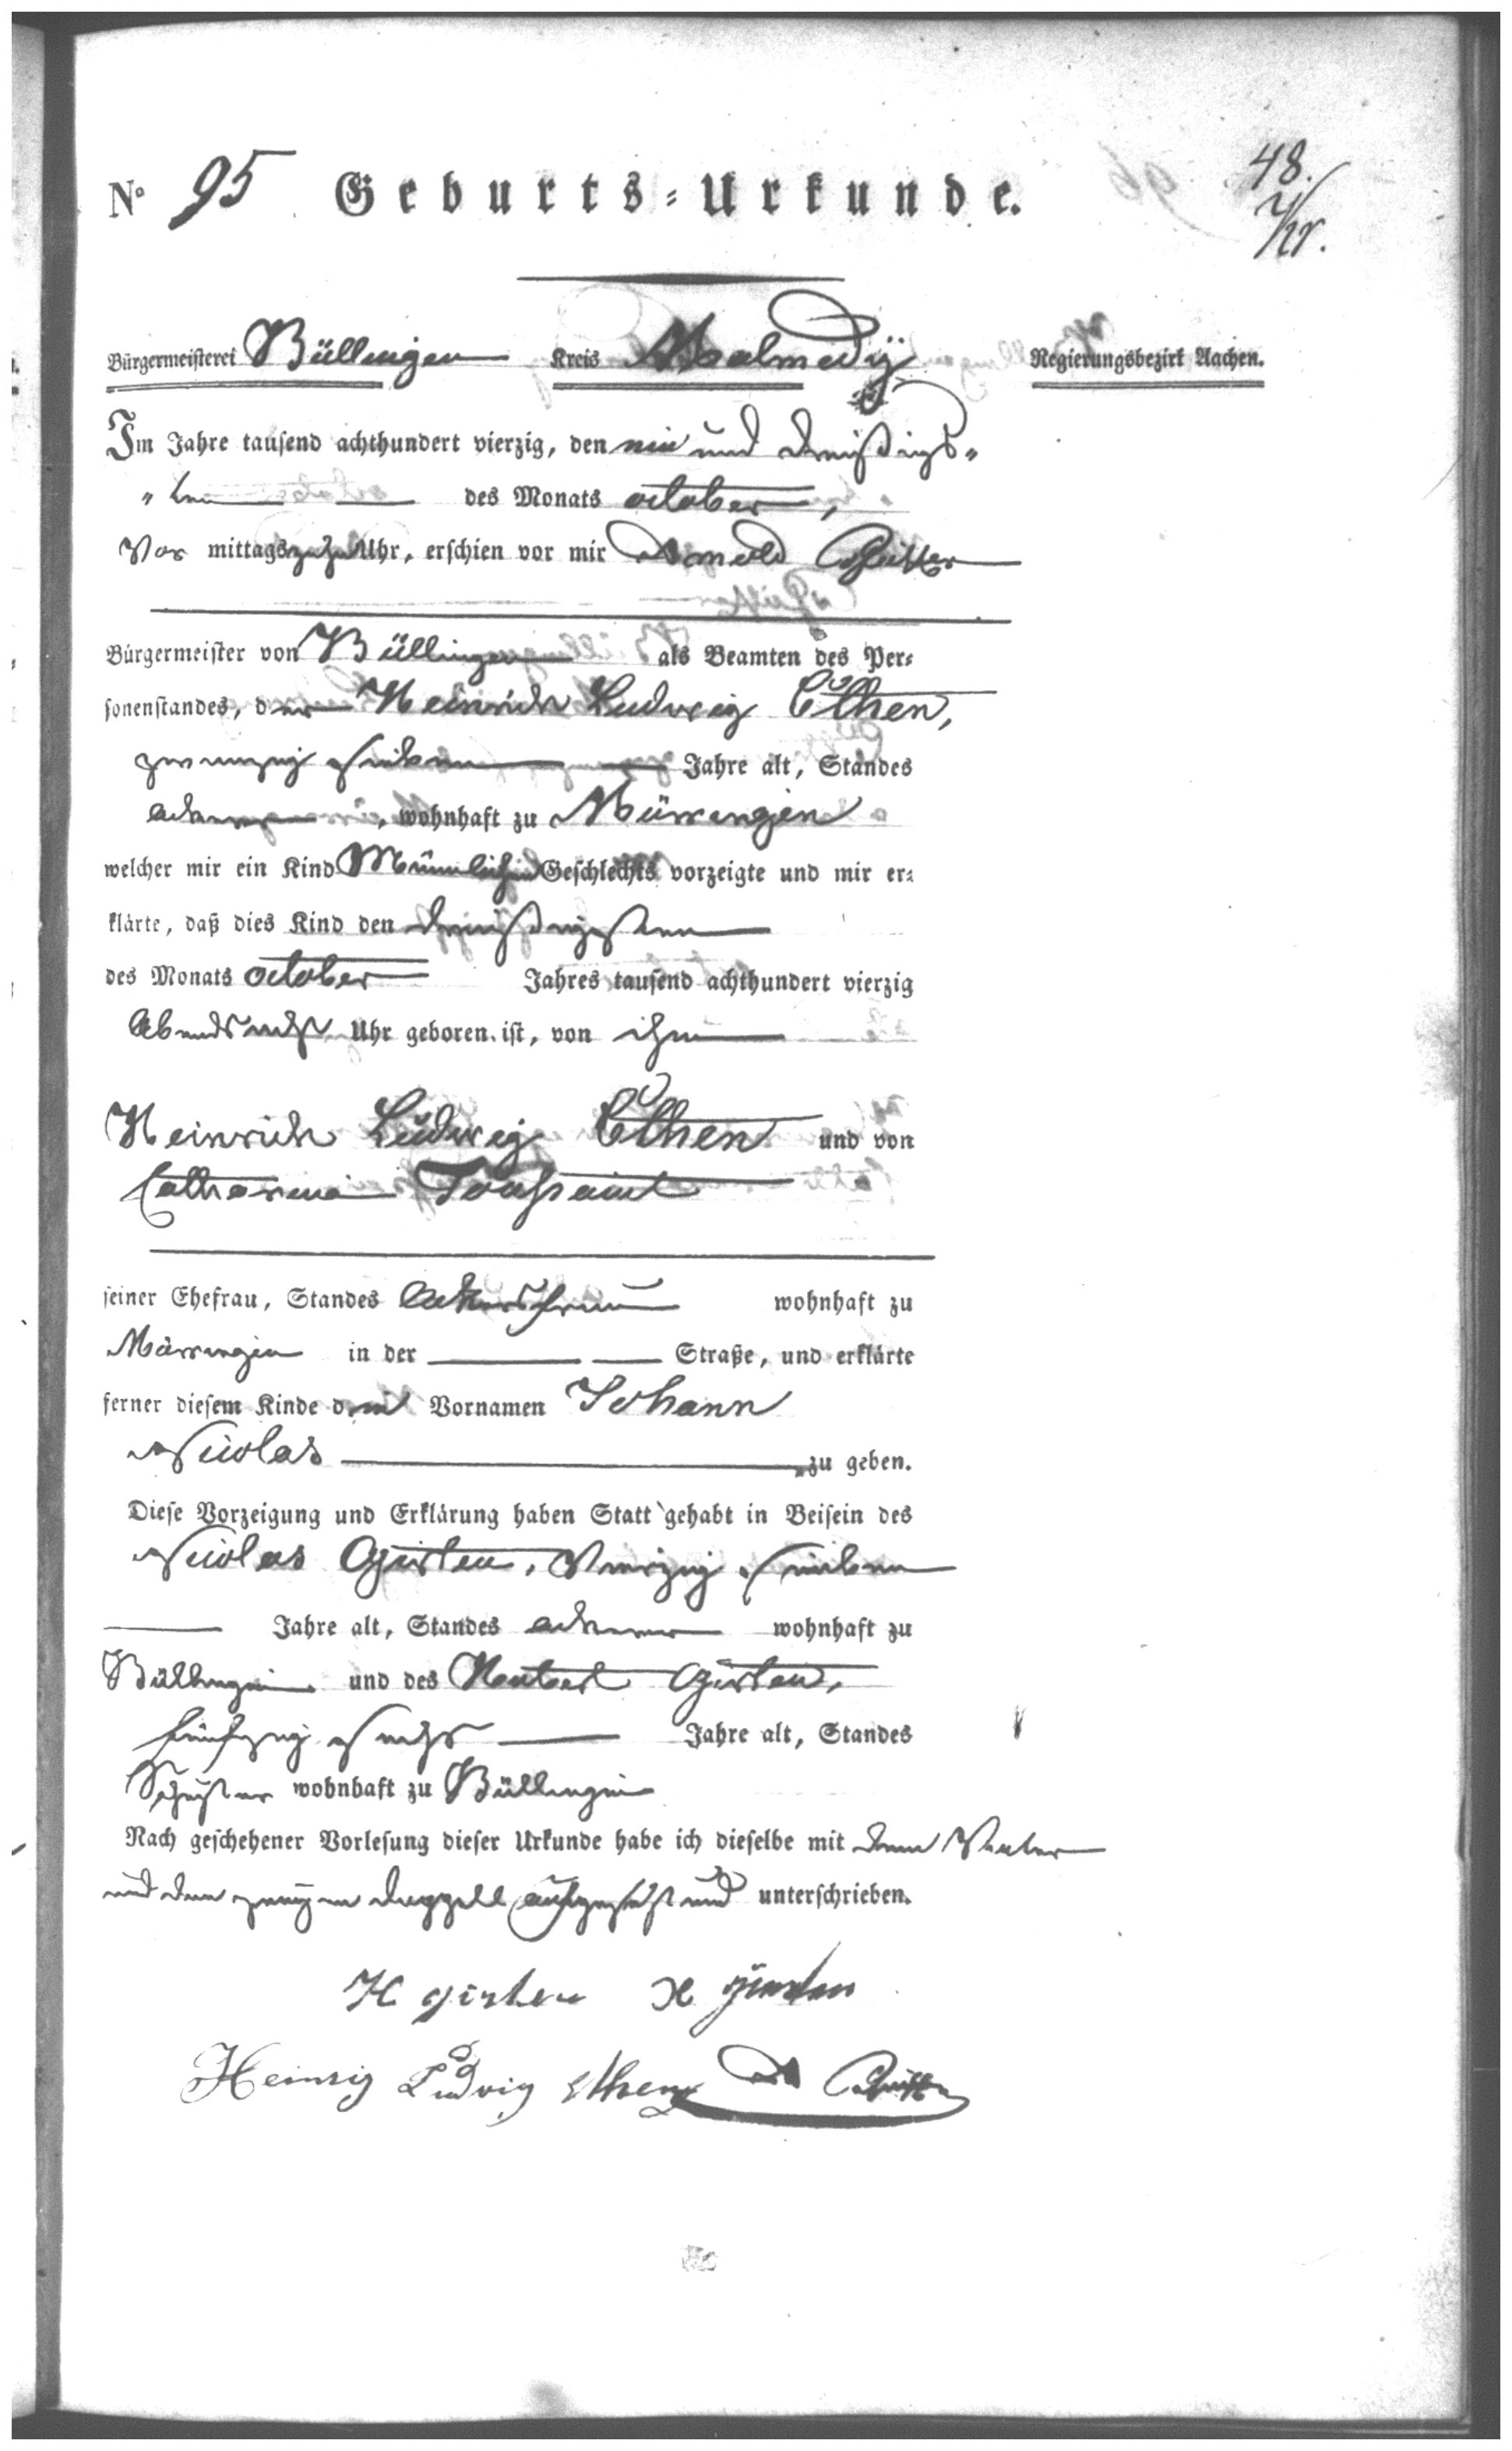 48.
No 95 Geburts-Urkunde.
Bürgermeisterei Büllingen Kreis Malmedÿ Regierungsbezirk Aachen.
Im Jahre tausend achthundert vierzig, den ein und dreißigs„
„ten des Monats october,
Vor mittags zehn Uhr, erschien vor mir Arnold
Bürgermeister von Büllingen als Beamten des Per-
sonenstandes, der Heinrich Ludwig Ethen,
zwanzig sieben Jahre alt, Standes
ackerer, wohnhaft zu Mürringen
welcher mir ein Kind Männlichen Geschlechts vorzeigte und mir er-
klärte, daß dies Kind den dreißigsten
des Monats october Jahres tausend achthundert vierzig
Abends acht Uhr geboren ist, von ihm
Heinrich Ludwig Ethen und von
Catharina Toussaint
seiner Ehefrau, Standes Ackersfrau wohnhaft zu
Mürringen in der Straße, und erklärte
ferner diesem Kinde den Vornamen Johann
Nicolas zu geben.
Diese Vorzeigung und Erklärung haben Statt gehabt in Beisein des
Nicolas Girten, Vierzig sieben
Jahre alt, Standes ackerer wohnhaft zu
Büllingen und des Hubert Girten,
fünfzig sechs Jahre alt, Standes
Schuster wohnhaft zu Büllingen
Nach geschehener Vorlesung dieser Urkunde habe ich dieselbe mit dem Vater
und den zeugen doppelt aufgesetzt und unterschrieben.
H girten N girten
Heinrig Ludwig Ethen A